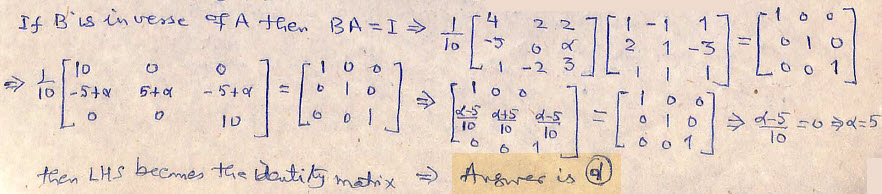 If B is inverse of A then BA = I ⇒ 1/10 [4 2 2; -5 0 α; 1 -2 3] [1 -1 1; 2 1 -3; 1 1 1] = [1 0 0; 0 1 0; 0 0 1]
⇒ 1/10 [10 0 0; -5+α 5+α -5+α; 0 0 10] = [1 0 0; 0 1 0; 0 0 1] ⇒ [1 0 0; α-5/10 α+5/10 α-5/10; 0 0 1] = [1 0 0; 0 1 0; 0 0 1] ⇒ α-5/10 = 0 ⇒ α=5
then LHS becomes the identity matrix ⇒ Answer is ⓓ